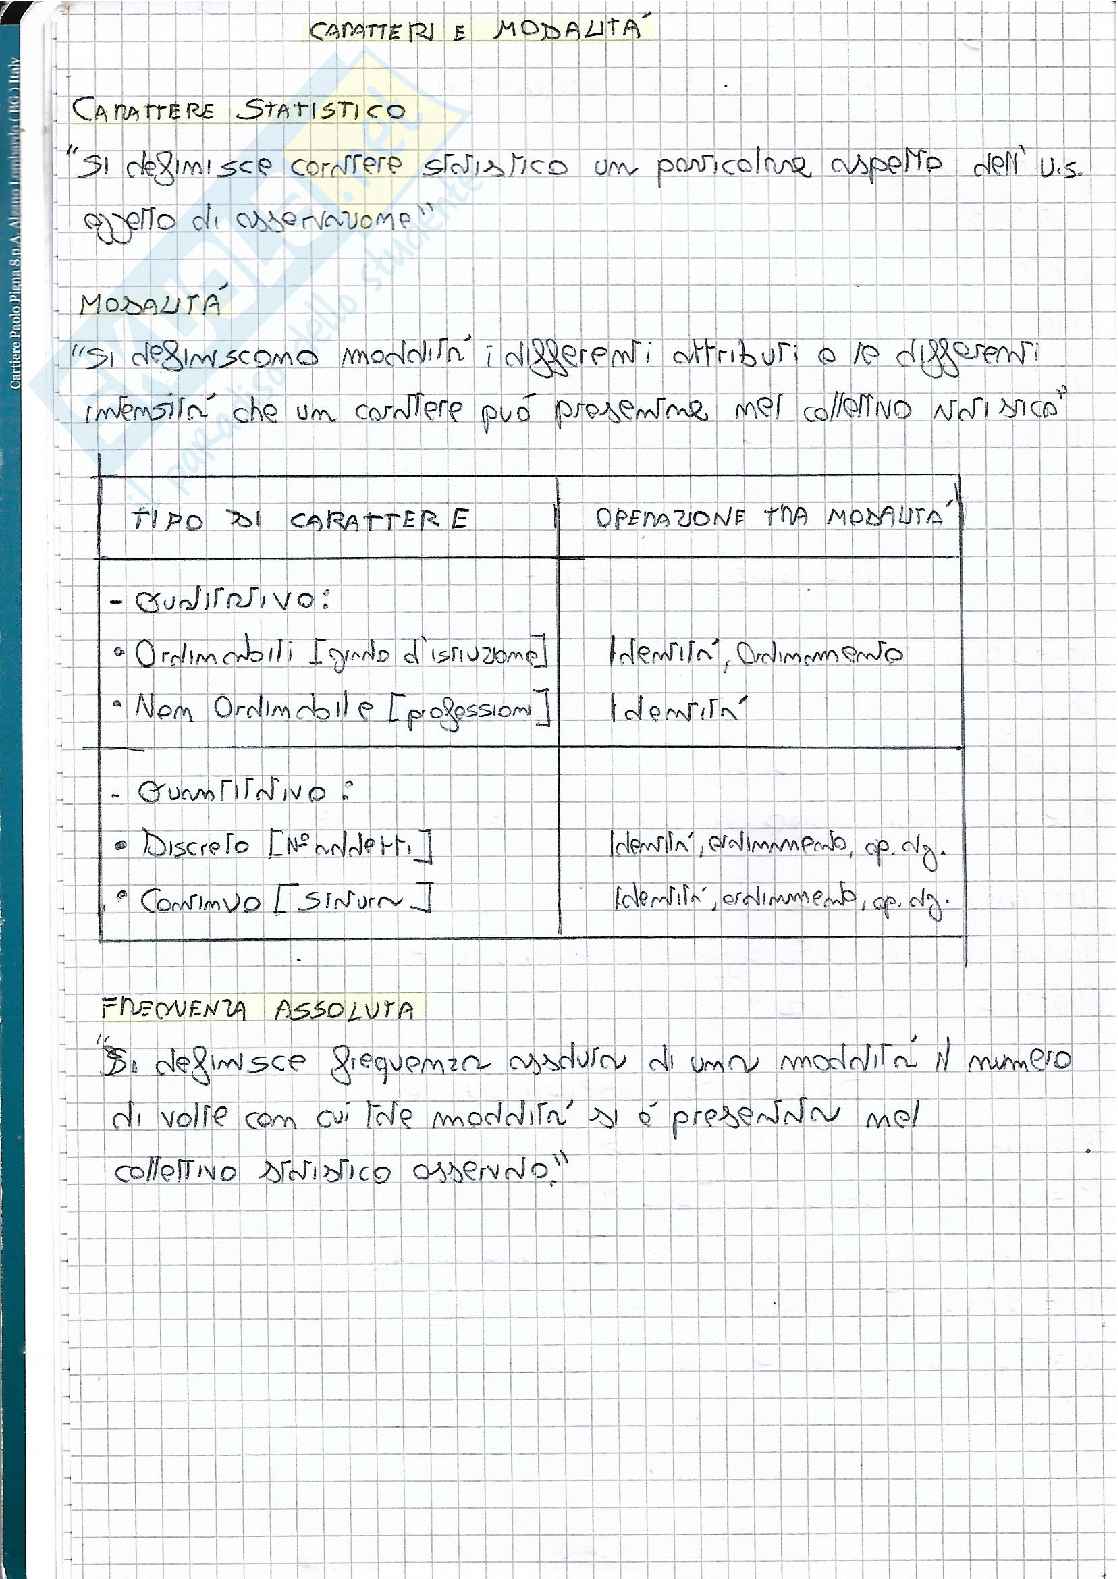 CARATTERI E MODALITÁ
CARATTERE STATISTICO
"Si definisce carattere statistico un particolare aspetto dell' U.S.
oggetto di osservazione"
MODALITÁ
"Si definiscono modalitá i differenti attributi o le differenti
intensitá che un carattere puó presentare nel collettivo statistico"
TIPO DI CARATTERE OPERAZIONE TRA MODALITÁ
- Qualitativo:
• Ordinabili [grado d'istruzione] Identitá, Ordinamento
• Non Ordinabile [professioni] Identitá
- Quantitativo:
• Discreto [N° addetti] Identitá, ordinamento, op. alg.
• Continuo [Statura] Identitá, ordinamento, op. alg.
FREQUENZA ASSOLUTA
"Si definisce frequenza assoluta di una modalitá il numero
di volte con cui tale modalitá si é presentata nel
collettivo statistico osservato."
Cartiere Paolo Pigna S.p.A. Alzano Lombardo (BG) Italy
il paradiso dello studente